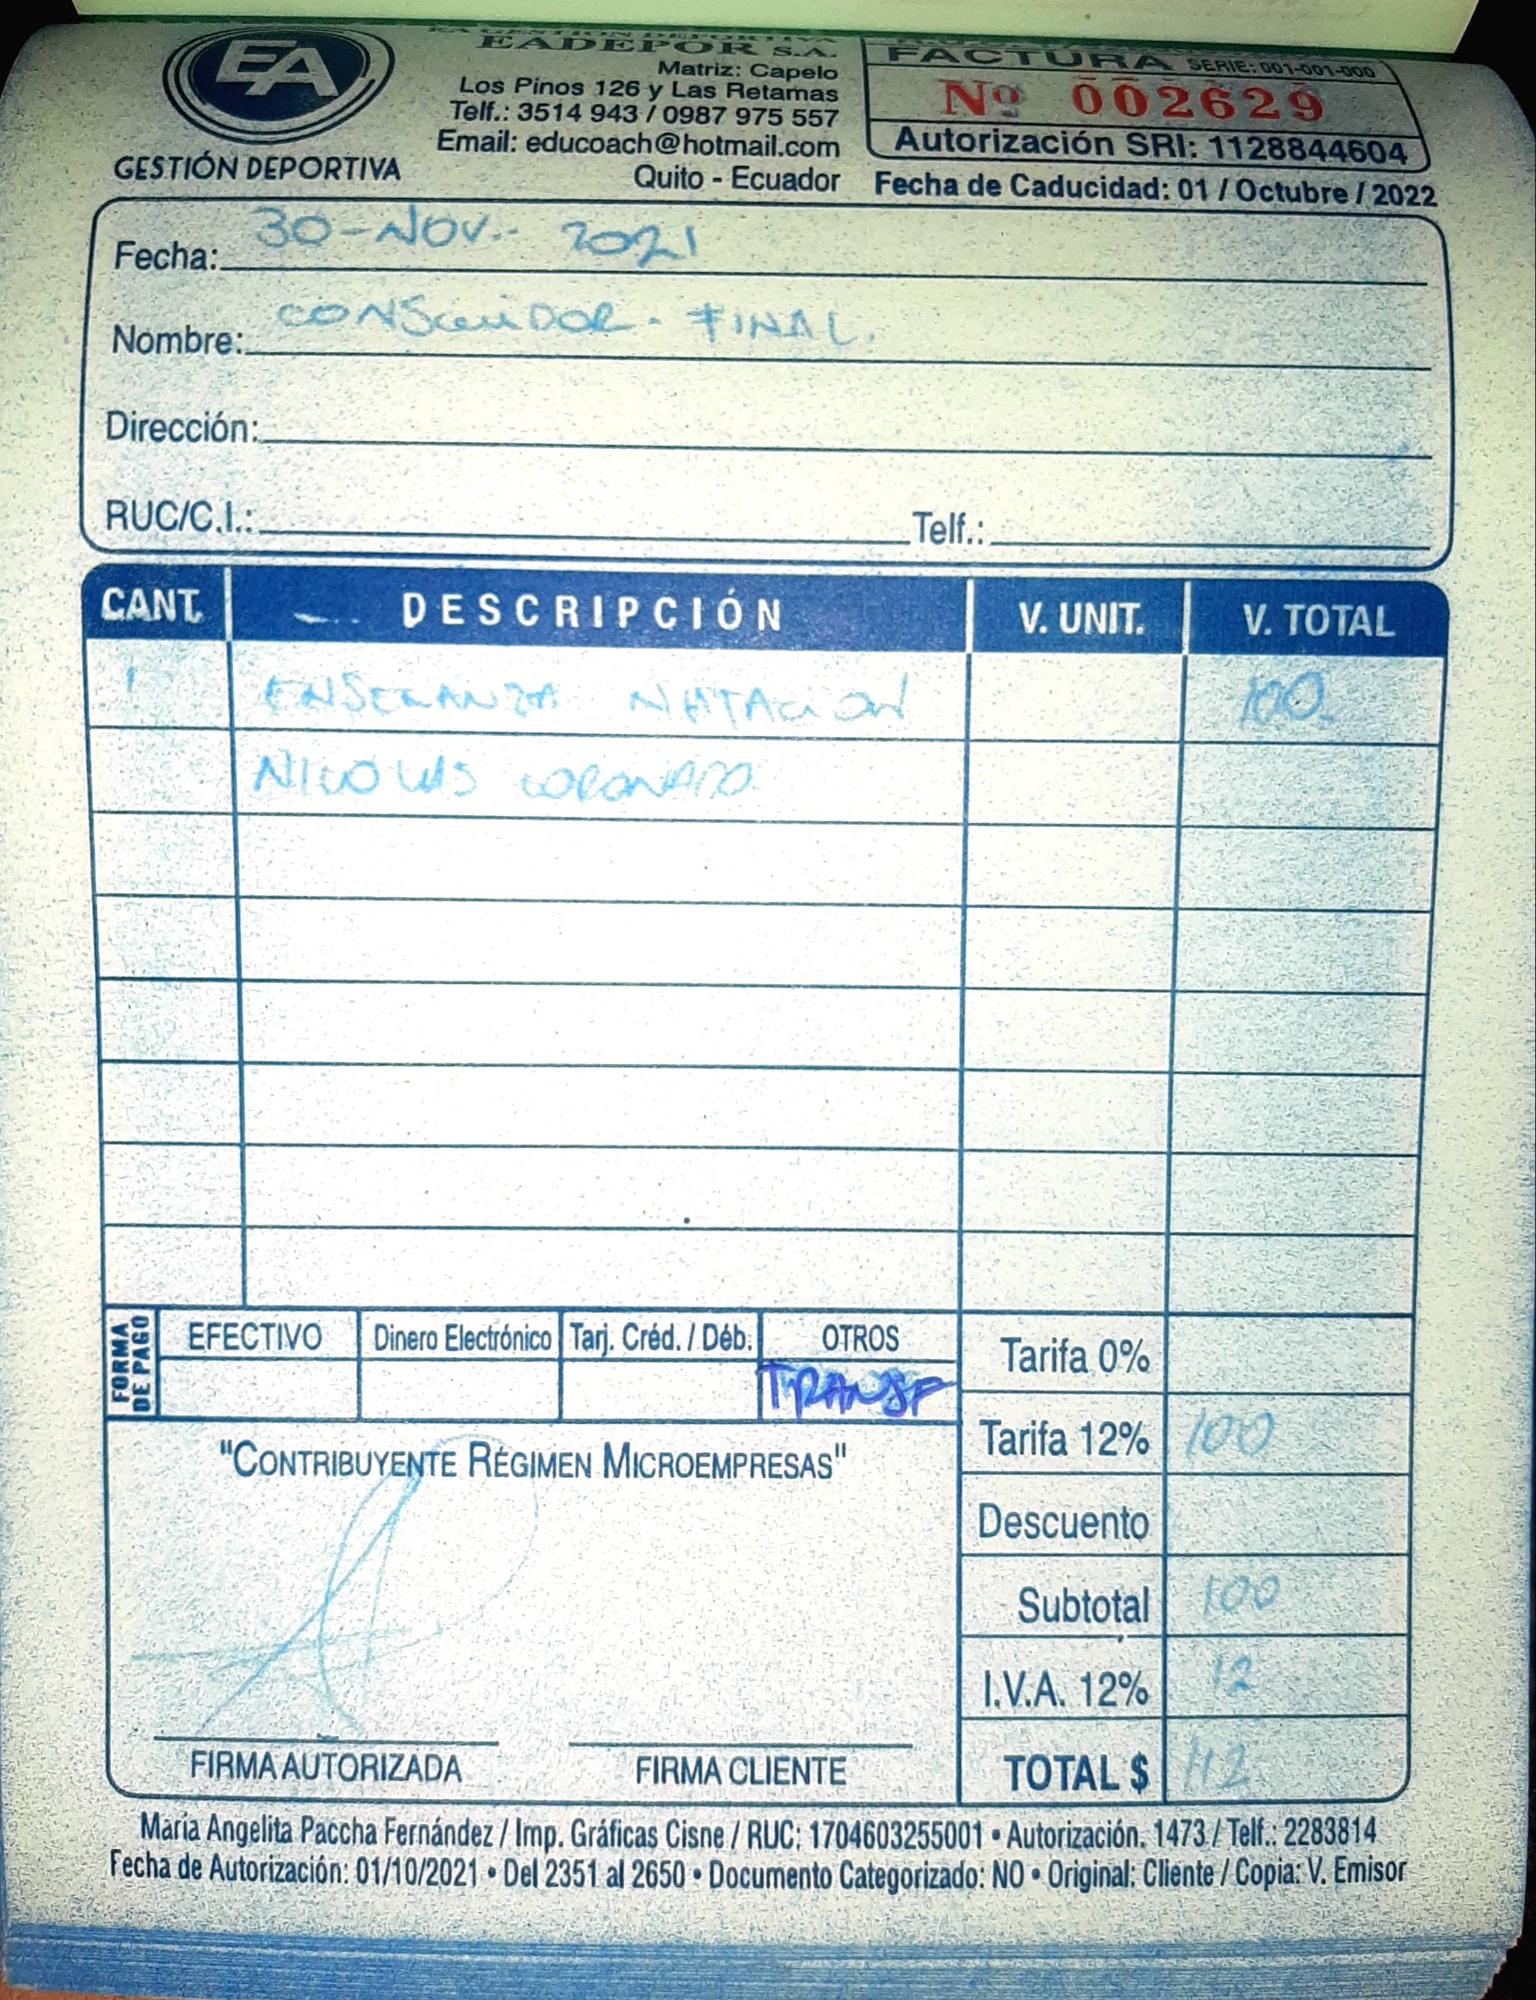 EA
GESTIÓN DEPORTIVA
EA GESTIÓN DEPORTIVA
EADEPOR S.A.
Matriz: Capelo
Los Pinos 126 y Las Retamas
Telf.: 3514 943 / 0987 975 557
Email: educoach@hotmail.com
Quito - Ecuador
FACTURA SERIE: 001-001-000
Nº 002629
Autorización SRI: 1128844604
Fecha de Caducidad: 01 / Octubre / 2022
Fecha: 30-NOV.- 2021
Nombre: CONSUMIDOR - FINAL.
Dirección:
RUC/C.I.: Telf.:
CANT. DESCRIPCIÓN V. UNIT. V. TOTAL
1 ENSEÑANZA NATACION 100
NICOLAS CORONADO.
FORMA DE PAGO
EFECTIVO Dinero Electrónico Tarj. Créd. / Déb. OTROS
TRANSF
Tarifa 0%
Tarifa 12% 100
Descuento
Subtotal 100
I.V.A. 12% 12
TOTAL $ 112
"CONTRIBUYENTE RÉGIMEN MICROEMPRESAS"
FIRMA AUTORIZADA FIRMA CLIENTE
María Angelita Paccha Fernández / Imp. Gráficas Cisne / RUC: 1704603255001 • Autorización. 1473 / Telf.: 2283814
Fecha de Autorización: 01/10/2021 • Del 2351 al 2650 • Documento Categorizado: NO • Original: Cliente / Copia: V. Emisor